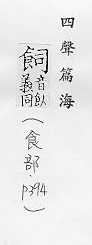 四聲篇海
飼音飤義同(食部·P394)